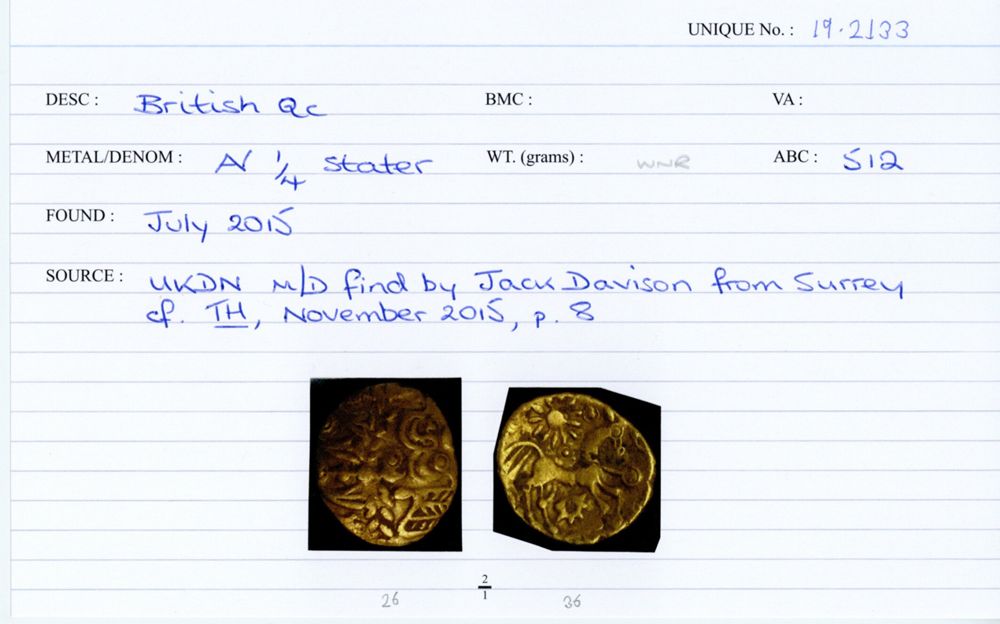 UNIQUE No. : 19.2133
DESC : British Qc BMC : VA :
METAL/DENOM : AV 1/4 stater WT. (grams) : WNR ABC : 512
FOUND : July 2015
SOURCE : UKDN M/D find by Jack Davison from Surrey
cf. TH, November 2015, p. 8
2
1
26 36